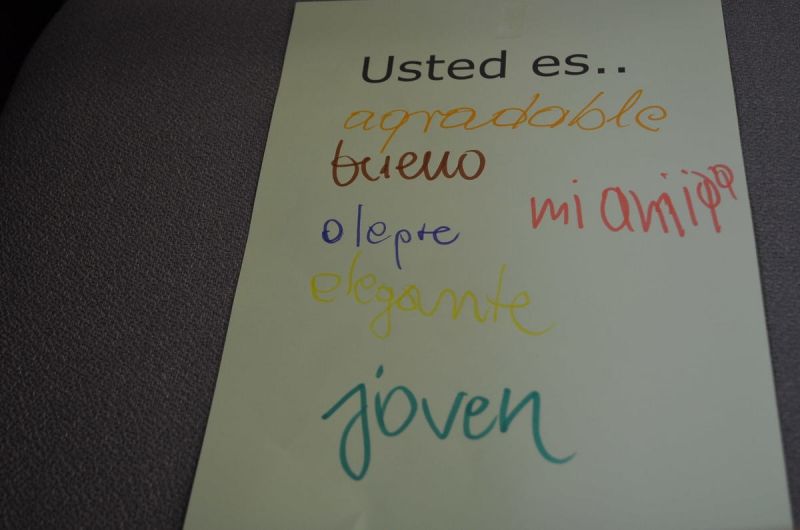 Usted es..
agradable
bueno
mi amigo
olepre
elegante
joven